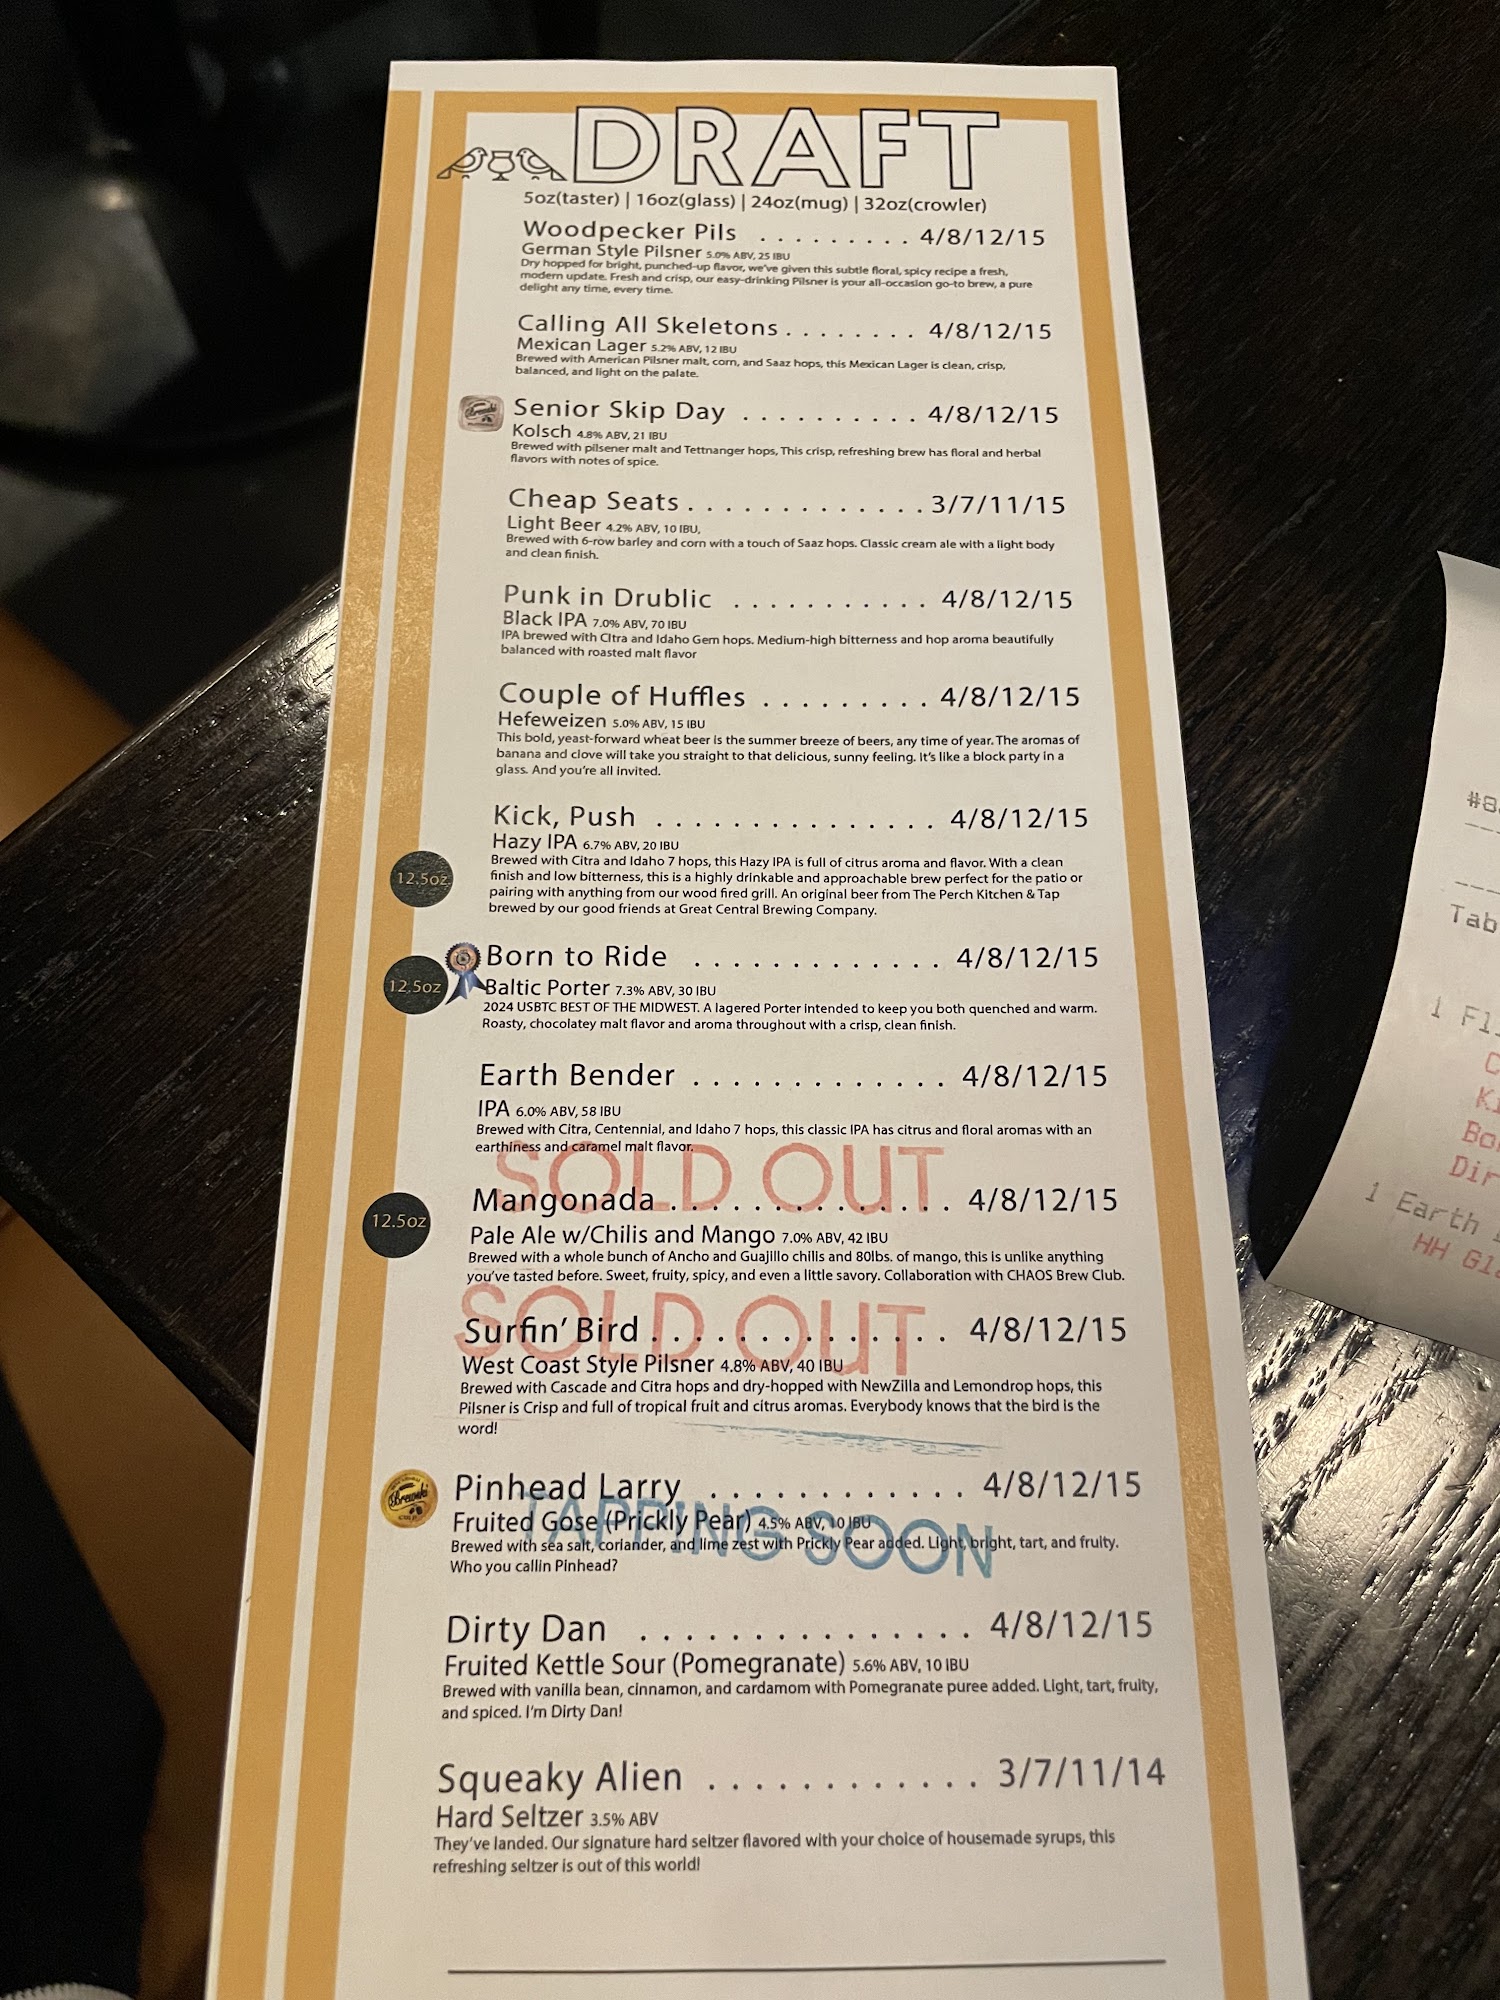 DRAFT
5oz(taster) | 16oz(glass) | 24oz(mug) | 32oz(crowler)
Woodpecker Pils . . . . . . . . . 4/8/12/15
German Style Pilsner 5.0% ABV, 25 IBU
Dry hopped for bright, punched-up flavor, we've given this subtle floral, spicy recipe a fresh,
modern update. Fresh and crisp, our easy-drinking Pilsner is your all-occasion go-to brew, a pure
delight any time, every time.
Calling All Skeletons . . . . . . . . 4/8/12/15
Mexican Lager 5.2% ABV, 12 IBU
Brewed with American Pilsner malt, corn, and Saaz hops, this Mexican Lager is clean, crisp,
balanced, and light on the palate.
Senior Skip Day . . . . . . . . . . 4/8/12/15
Kolsch 4.8% ABV, 21 IBU
Brewed with pilsener malt and Tettnanger hops, This crisp, refreshing brew has floral and herbal
flavors with notes of spice.
Cheap Seats . . . . . . . . . . . . . 3/7/11/15
Light Beer 4.2% ABV, 10 IBU,
Brewed with 6-row barley and corn with a touch of Saaz hops. Classic cream ale with a light body
and clean finish.
Punk in Drublic . . . . . . . . . . . 4/8/12/15
Black IPA 7.0% ABV, 70 IBU
IPA brewed with CItra and Idaho Gem hops. Medium-high bitterness and hop aroma beautifully
balanced with roasted malt flavor
Couple of Huffles . . . . . . . . . 4/8/12/15
Hefeweizen 5.0% ABV, 15 IBU
This bold, yeast-forward wheat beer is the summer breeze of beers, any time of year. The aromas of
banana and clove will take you straight to that delicious, sunny feeling. It's like a block party in a
glass. And you're all invited.
Kick, Push . . . . . . . . . . . . . . . 4/8/12/15
Hazy IPA 6.7% ABV, 20 IBU
12.5oz
Brewed with Citra and Idaho 7 hops, this Hazy IPA is full of citrus aroma and flavor. With a clean
finish and low bitterness, this is a highly drinkable and approachable brew perfect for the patio or
pairing with anything from our wood fired grill. An original beer from The Perch Kitchen & Tap
brewed by our good friends at Great Central Brewing Company.
Born to Ride . . . . . . . . . . . . . 4/8/12/15
12.5oz
Baltic Porter 7.3% ABV, 30 IBU
2024 USBTC BEST OF THE MIDWEST. A lagered Porter intended to keep you both quenched and warm.
Roasty, chocolatey malt flavor and aroma throughout with a crisp, clean finish.
Earth Bender . . . . . . . . . . . . . 4/8/12/15
IPA 6.0% ABV, 58 IBU
Brewed with Citra, Centennial, and Idaho 7 hops, this classic IPA has citrus and floral aromas with an
earthiness and caramel malt flavor.
SOLD OUT
Mangonada . . . . . . . . . . . . . 4/8/12/15
12.5oz
Pale Ale w/Chilis and Mango 7.0% ABV, 42 IBU
Brewed with a whole bunch of Ancho and Guajillo chilis and 80lbs. of mango, this is unlike anything
you've tasted before. Sweet, fruity, spicy, and even a little savory. Collaboration with CHAOS Brew Club.
SOLD OUT
Surfin' Bird . . . . . . . . . . . . . . 4/8/12/15
West Coast Style Pilsner 4.8% ABV, 40 IBU
Brewed with Cascade and Citra hops and dry-hopped with NewZilla and Lemondrop hops, this
Pilsner is Crisp and full of tropical fruit and citrus aromas. Everybody knows that the bird is the
word!
Pinhead Larry . . . . . . . . . . . . 4/8/12/15
TAPPING SOON
Fruited Gose (Prickly Pear) 4.5% ABV, 10 IBU
Brewed with sea salt, coriander, and lime zest with Prickly Pear added. Light, bright, tart, and fruity.
Who you callin Pinhead?
Dirty Dan . . . . . . . . . . . . . . . 4/8/12/15
Fruited Kettle Sour (Pomegranate) 5.6% ABV, 10 IBU
Brewed with vanilla bean, cinnamon, and cardamom with Pomegranate puree added. Light, tart, fruity,
and spiced. I'm Dirty Dan!
Squeaky Alien . . . . . . . . . . . . 3/7/11/14
Hard Seltzer 3.5% ABV
They've landed. Our signature hard seltzer flavored with your choice of housemade syrups, this
refreshing seltzer is out of this world!
Tab
1 Fl
Dir
1 Earth
HH Gl